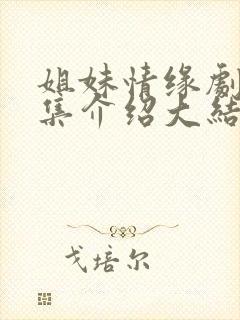 姐妹情缘劇
集介绍大結
戈培尔